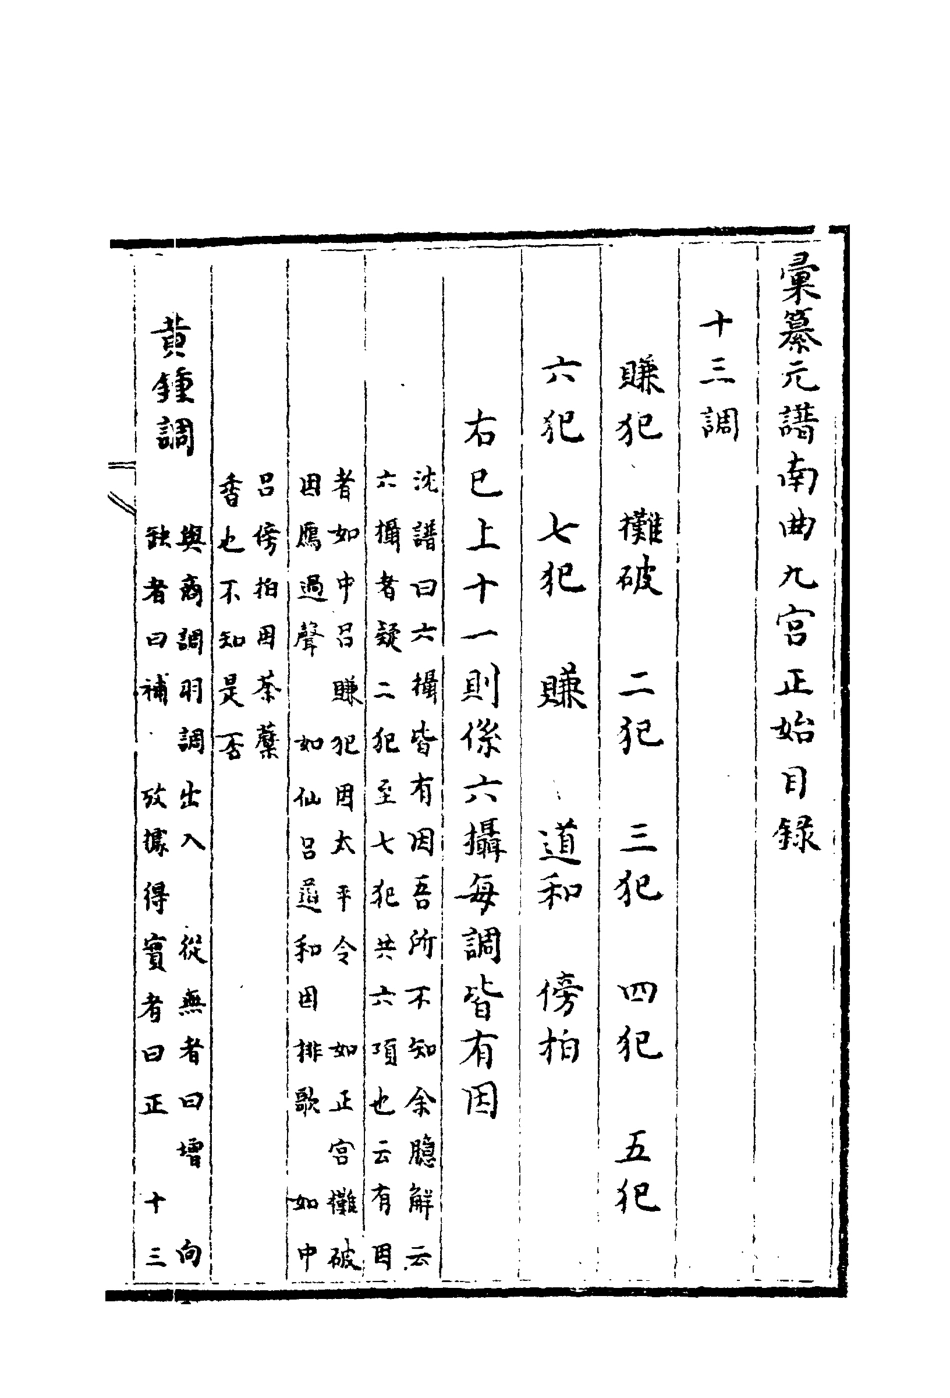 彙纂元譜南曲九宮正始目録
十三調
賺犯　攤破　二犯　三犯　四犯　五犯
六犯　七犯　賺　道和　傍拍
右已上十一則係六攝每調皆有因
沈譜曰六攝皆有因吾所不知余臆解云
六攝者疑二犯至七犯共六項也云有因
者如中呂賺犯因太平令　如正宮攤破
因鴈過聲　如仙呂道和因排歌　如中
呂傍拍因荼蘼
香也不知是否
黃鍾調
與商調羽調出入　從無者曰增　向
缺者曰補　攷據得實者曰正　十三